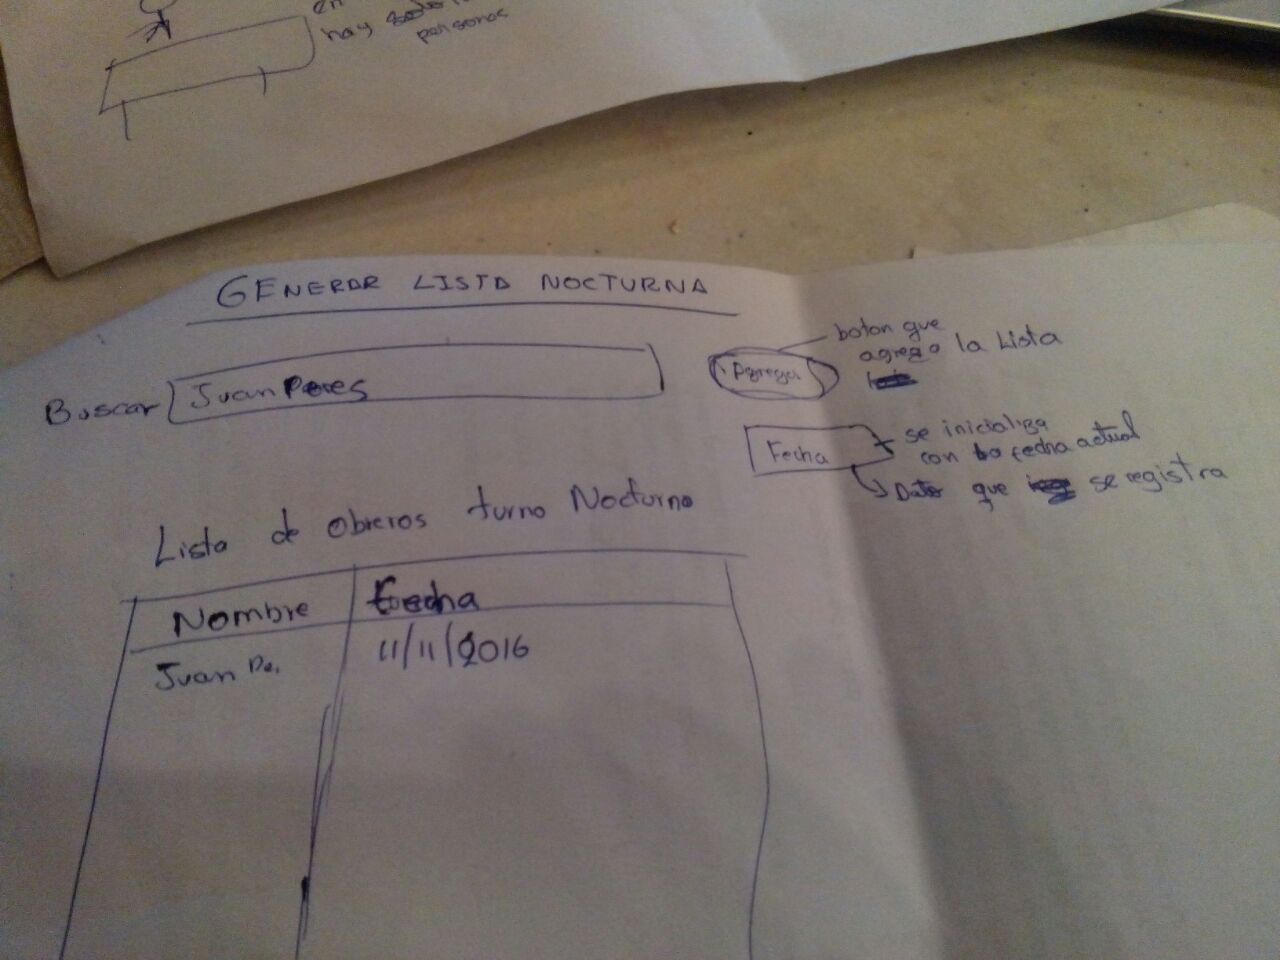 en
hay
personas
GENERAR LISTA NOCTURNA
Buscar Juan Peres
Agregar
boton que
agrega la Lista
Fecha
se inicializa
con la fecha actual
Dato que se registra
Lista de obreros turno Nocturno
Nombre Fecha
Juan Pe. 11/11/2016